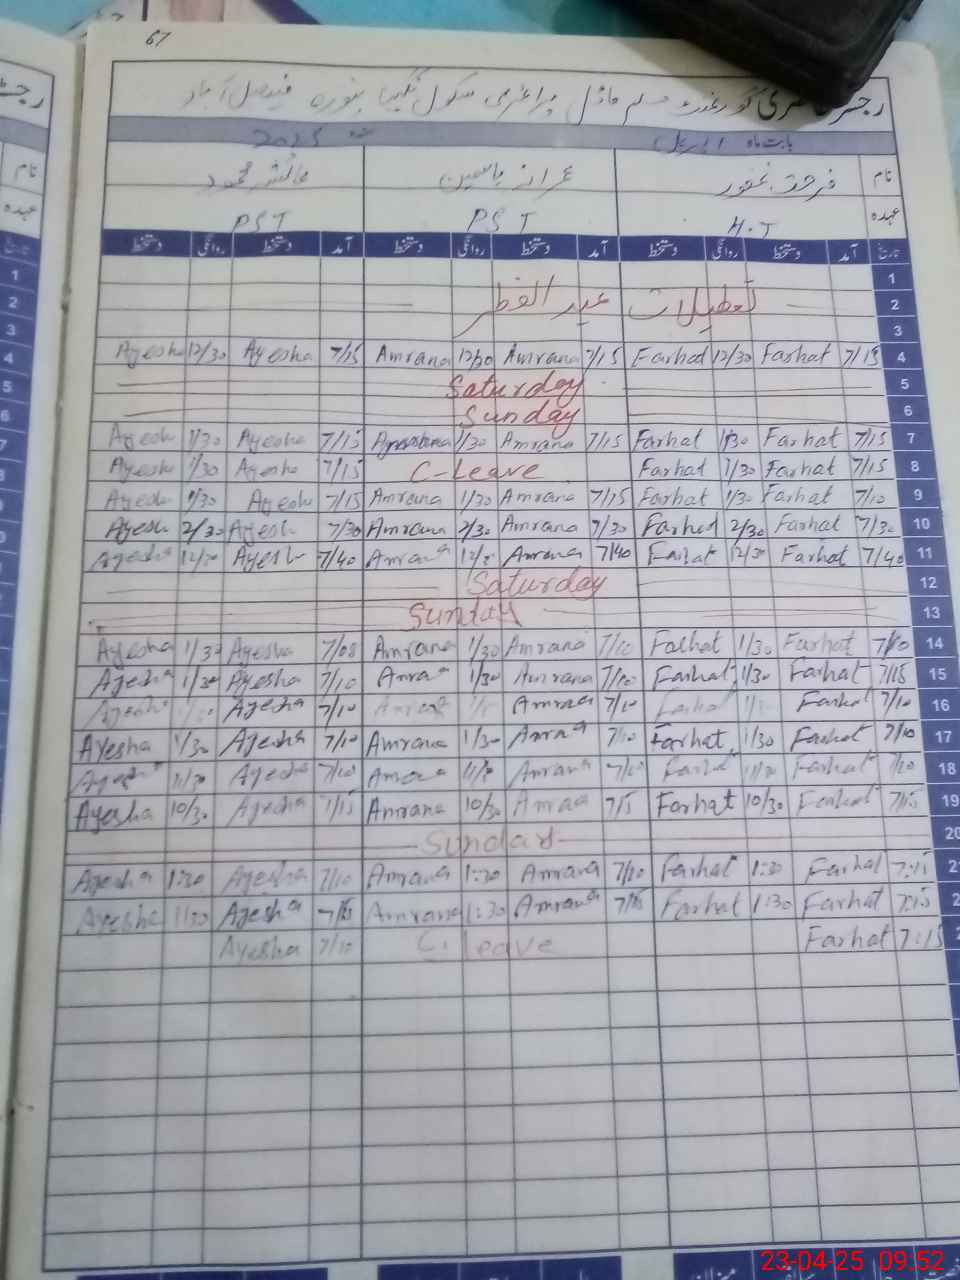 67
رجسٹر حاضری گورنمنٹ مسلم ماڈل پرائمری سکول نگینہ پورہ فیصل آباد
بابت ماہ اپریل 2025
نام فرحت غفور عمرانہ یاسمین عائشہ محمود
عہدہ H.T PST PST
تاریخ آمد دستخط روانگی دستخط آمد دستخط روانگی دستخط آمد دستخط روانگی دستخط
1
تعطیلات عید الفطر 2
3
Ayesha 12/30 Ayesha 7/15 Amrana 12/30 Amrana 7/15 Farhat 12/30 Farhat 7/15 4
Saturday 5
Sunday 6
Ayesh 1/30 Ayesha 7/15 1/30 Amrana 7/15 Farhat 1/30 Farhat 7/15 7
Ayesh 1/30 Ayesha 7/15 C-Leave Farhat 1/30 Farhat 7/15 8
Ayesh 1/30 Ayesh 7/15 Amrana 1/30 Amrana 7/15 Farhat 1/30 Farhat 7/10 9
Ayesh 2/30 Ayesh 7/30 Amrana 2/30 Amrana 7/30 Farhat 2/30 Farhat 7/30 10
Ayesha 12/30 Ayesh 7/40 Amrana Amrana 7/40 Farhat 12/30 Farhat 7/40 11
Saturday 12
Sunday 13
Ayesha 1/30 Ayesha 7/08 Amrana 1/30 Amrana 7/10 Farhat 1/30 Farhat 7/10 14
Ayesha 1/30 Ayesha 7/10 Amraa 1/30 Amrana 7/10 Farhat 1/30 Farhat 7/15 15
Ayesha Ayesha 7/10 Amraa 7/10 Farhat Farhat 7/10 16
Ayesha 1/30 Ayesha 7/10 Amrana 1/30 Amraa 7/10 Farhat 1/30 Farhat 7/10 17
Ayesha 11/30 Ayesha 7/08 Amrana Amrana 7/10 Farhat 11/30 Farhat 7/10 18
Ayesha 10/30 Ayesha 7/15 Amrana 10/30 Amraa 7/15 Farhat 10/30 Farhat 7/15 19
Sunday 20
Ayesha 1:30 Ayesha 7/10 Amrana 1:30 Amrana 7/10 Farhat 1:30 Farhat 7:15 2
Ayesha 1/30 Ayesha 7/15 Amrana 1:30 Amrana 7/15 Farhat 1:30 Farhat 7:15 2
Ayesha 7/10 C. Leave Farhat 7:15 2
23-04-25 09:52